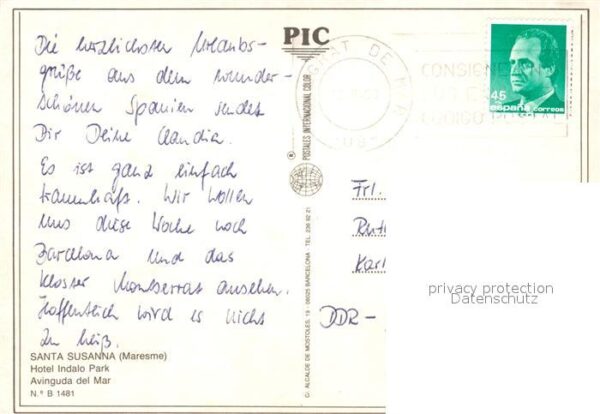 Die herzlichsten Urlaubs-
grüße aus dem wunder-
schönen Spanien sendet
Dir Deine Claudia.
Es ist ganz einfach
traumhaft. Wir wollen
uns diese Woche noch
Barcelona und das
Kloster Montserrat ansehen.
Hoffentlich wird es nicht
zu heiß.
SANTA SUSANNA (Maresme)
Hotel Indalo Park
Avinguda del Mar
N.º B 1481
PIC
POSTALES INTERNACIONAL COLOR
C/ ALCALDE DE MOSTOLES, 19 - 08025 BARCELONA - TEL. 236 92 21
CODIGO
45
españa correos
Frl.
DDR -
privacy protection
Datenschutz